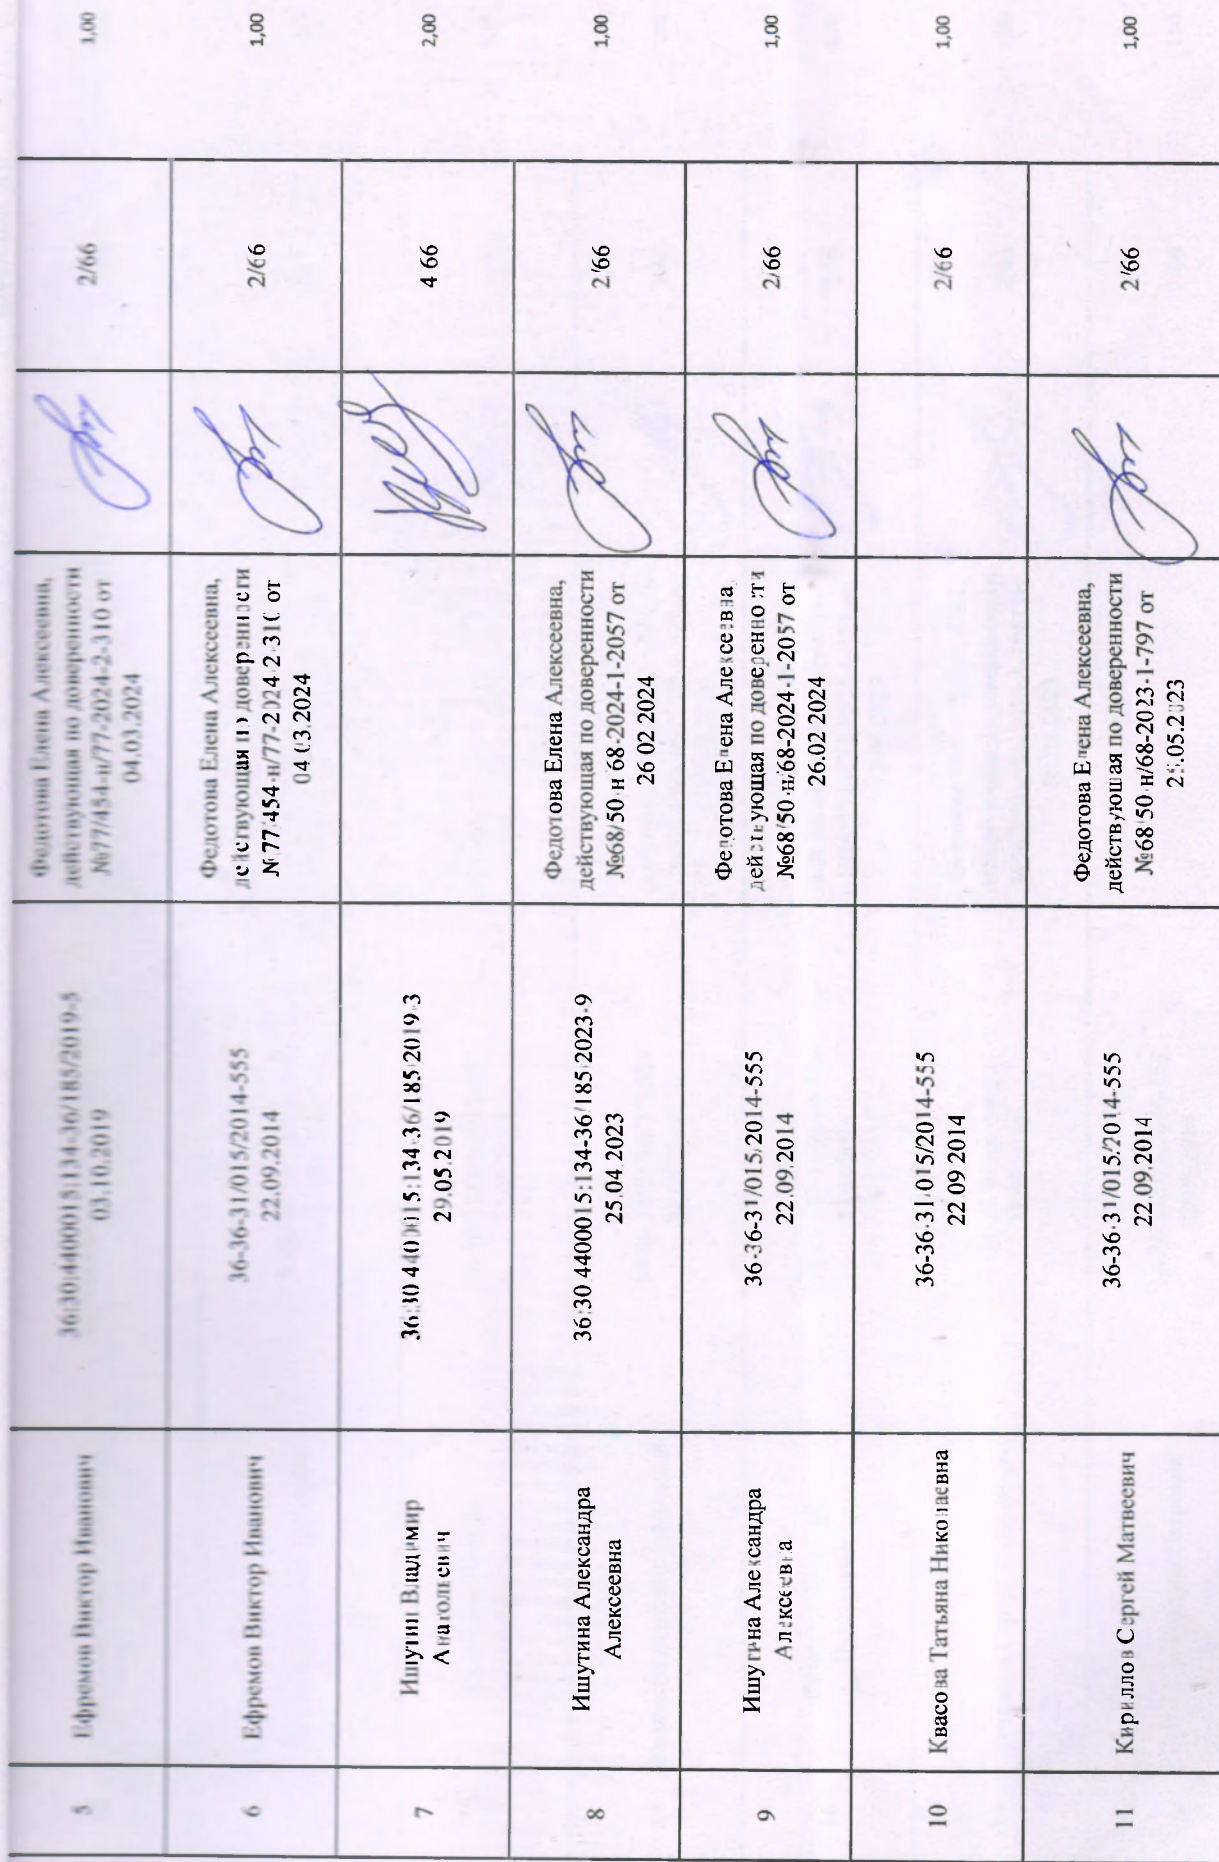 5
Ефремов Виктор Иванович
36:30:4400015:134-36/185/2019-5
03.10.2019
Федотова Елена Алексеевна,
действующая по доверенности
№77/454-н/77-2024-2-310 от
04.03.2024
2/66
1,00
6
Ефремов Виктор Иванович
36-36-31/015/2014-555
22.09.2014
Федотова Елена Алексеевна,
действующая по доверенности
№77/454-н/77-2024-2-310 от
04.03.2024
2/66
1,00
7
Ишутин Владимир
Анатольевич
36:30:4400015:134-36/185/2019-3
29.05.2019
4 66
2,00
8
Ишутина Александра
Алексеевна
36:30 4400015:134-36/185/2023-9
25.04.2023
Федотова Елена Алексеевна,
действующая по доверенности
№68/50-н 68-2024-1-2057 от
26 02 2024
2/66
1,00
9
Ишутина Александра
Алексеевна
36-36-31/015/2014-555
22.09.2014
Федотова Елена Алексеевна,
действующая по доверенности
№68/50-н/68-2024-1-2057 от
26.02 2024
2/66
1,00
10
Квасова Татьяна Николаевна
36-36-31/015/2014-555
22 09 2014
2/66
1,00
11
Кириллов Сергей Матвеевич
36-36-31/015/2014-555
22.09.2014
Федотова Елена Алексеевна,
действующая по доверенности
№68/50-н/68-2023-1-797 от
2/66
1,00